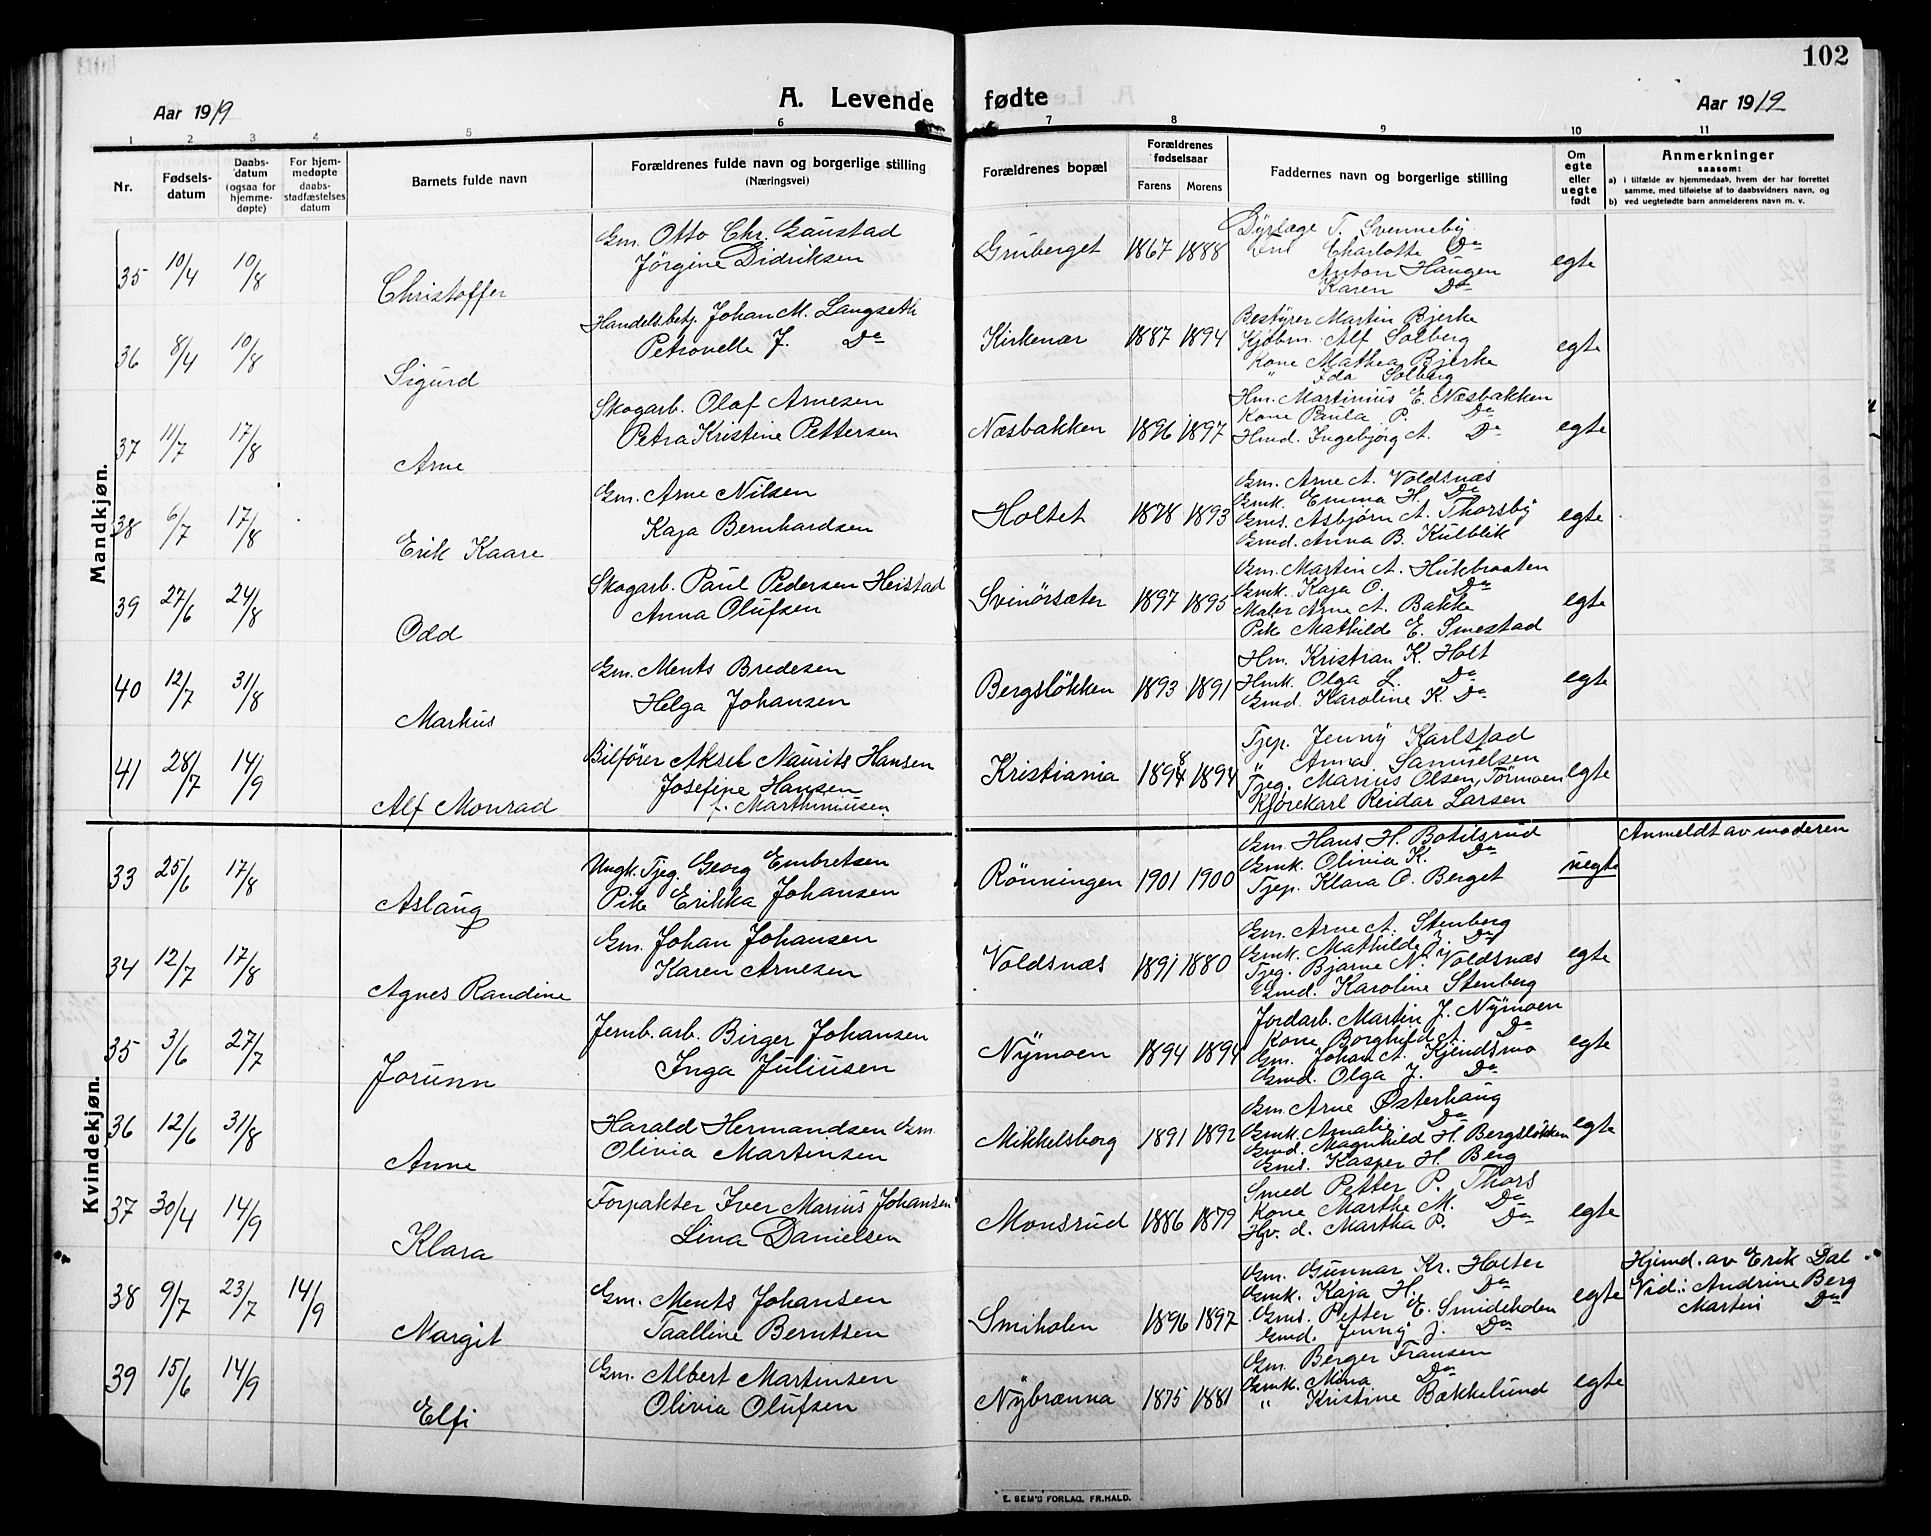 102
A. Levende fødte
Aar 1919
Aar 1919
1 2 3 4 5 6 7 8 9 10 11
Nr.
Fødsels-
datum
Daabs-
datum
(ogsaa for
hjemme-
døpte)
For hjem-
medøpte
daabs-
stadfæstelses
datum
Barnets fulde navn
Forældrenes fulde navn og borgerlige stilling
(Næringsvei)
Forældrenes bopæl
Forældrenes
fødselsaar
Farens Morens
Faddernes navn og borgerlige stilling
Om
egte
eller
uegte
født
Anmerkninger
saasom:
a) i tilfælde av hjemmedaab, hvem der har forrettet
samme, med tilføielse af to daabsvidners navn, og
b) ved uegtefødte barn anmelderens navn m. v.
Mandkjøn.
35 10/4 10/8 Christoffer
Gm. Otto Chr. Gaustad
Jörgine Didriksen
Gruberget 1867 1888
Dyrlæge T. Svenneby
Frk Charlotte Do
Anton Haugen
Karen Do
egte
36 8/4 10/8 Sigurd
Handelsbetj. Johan M. Langseth
Petronelle J. Do
Kirkenær 1887 1894
Bestyrer Martin Bjerke
Kjöbm. Alf Solberg
Kone Mathea Bjerke
" Ida Solberg
egte
37 11/7 17/8 Arne
Skogarb. Olaf Arnesen
Petra Kristine Pettersen
Næsbakken 1896 1897
Hm. Martinius E. Næsbakken
Kone Paula P. Do
Hmd. Ingebjørg A. Do
egte
38 6/7 17/8 Erik Kaare
Gm. Arne Nilsen
Kaja Bernhardsen
Holtet 1878 1893
Gm. Arne A. Voldsnæs
Gmk. Emma H. Do
Gms. Asbjørn A. Thorsby
Gmd. Anna B. Kulblik
egte
39 27/6 24/8 Odd
Skogarb. Paul Pedersen Heistad
Anna Olufsen
Svinörsæter 1897 1895
Gm. Martin A. Hukbraaten
Gmk. Kaja O. Do
Maler Arne A. Bakke
Pike Mathilde E. Smestad
egte
40 12/7 31/8 Markus
Gm. Ments Bredesen
Helga Johansen
Bergslökken 1893 1891
Hm. Kristian K. Holt
Hmk. Olga L. Do
Gmd. Karoline K. Do
egte
41 28/7 14/9 Alf Monrad
Bilförer Aksel Maurits Hansen
Josefine Hansen
f. Marthiniusen.
Kristiania 1898 1894
Tjep. Jenny Karlstad
" Anna Samuelsen
Tjeg. Marius Olsen, Törmoen
Kjørekarl Reidar Larsen
egte
Kvindekjøn.
33 25/6 17/8 Aslaug
Ungk. Tjeg. Georg Embretsen
Pike Erikka Johansen
Rönningen 1901 1900
Gm. Hans H. Botilsrud
Gmk. Olivia K. Do
Tjep. Klara O. Berget
uegte
Anmeldt av moderen
34 12/7 17/8 Agnes Randine
Gm. Johan Johansen
Karen Arnesen
Voldsnæs 1891 1880
Gm. Arne A. Stenberg
Gmk. Mathilde J. Do
Tjeg. Bjarne N. Voldsnæs
Gmd. Karoline Stenberg
egte
35 3/6 27/7 Jorunn
Jernb. arb. Birger Johansen
Inga Juliusen
Nymoen 1894 1894
Jordarb. Martin J. Nymoen
Kone Borghild A. Do
Gm. Johan A. Kjendsmo
Gmd. Olga J. Do
egte
36 12/6 31/8 Anne
Harald Hermandsen Gm.
Olivia Martinsen
Mikkelsborg 1891 1892
Gm. Arne Østerhaug
Gmk. Amalie Do
Gmd. Magnhild H. Bergslökken
Gms. Kasper H. Berg
egte
37 30/4 14/9 Klara
Forpakter Iver Marius Johansen
Lina Danielsen
Monsrud 1886 1879
Smed Petter P. Thors
Kone Marthe M. Do
Hv. d. Martha P. Do
egte
38 9/7 23/7 14/9 Margit
Gm. Ments Johansen
Taalline Berntsen
Smiholen 1896 1897
Gm. Gunnar Kr. Holter
Gmk. Kaja H. Do
Gms. Petter E. Smideholen
Gmd. Jenny J. Do
egte
Hjemd. av Erik Dal
Vid.: Andrine Berg
Martin Do
39 15/6 14/9 Elfi
Gm. Albert Martinsen
Olivia Olufsen
Nybrænna 1875 1881
Gm. Berger Fransen
Gmk. Mina Do
" Kristine Bækkelund
egte
E. SEM'S FORLAG. FR.HALD.